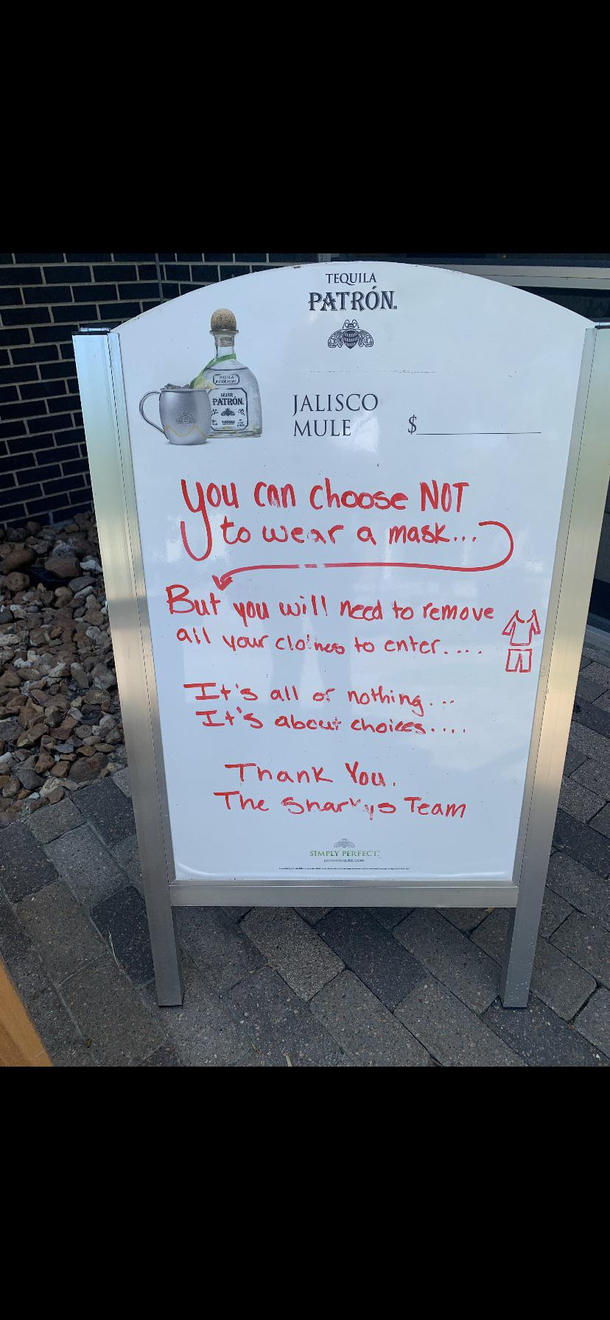 TEQUILA
PATRÓN.
PATRÓN.
JALISCO
MULE $
You can choose NOT
to wear a mask...
But you will need to remove
all your clothes to enter....
It's all or nothing...
It's about choices....
Thank You.
The Sharkys Team
SIMPLY PERFECT.